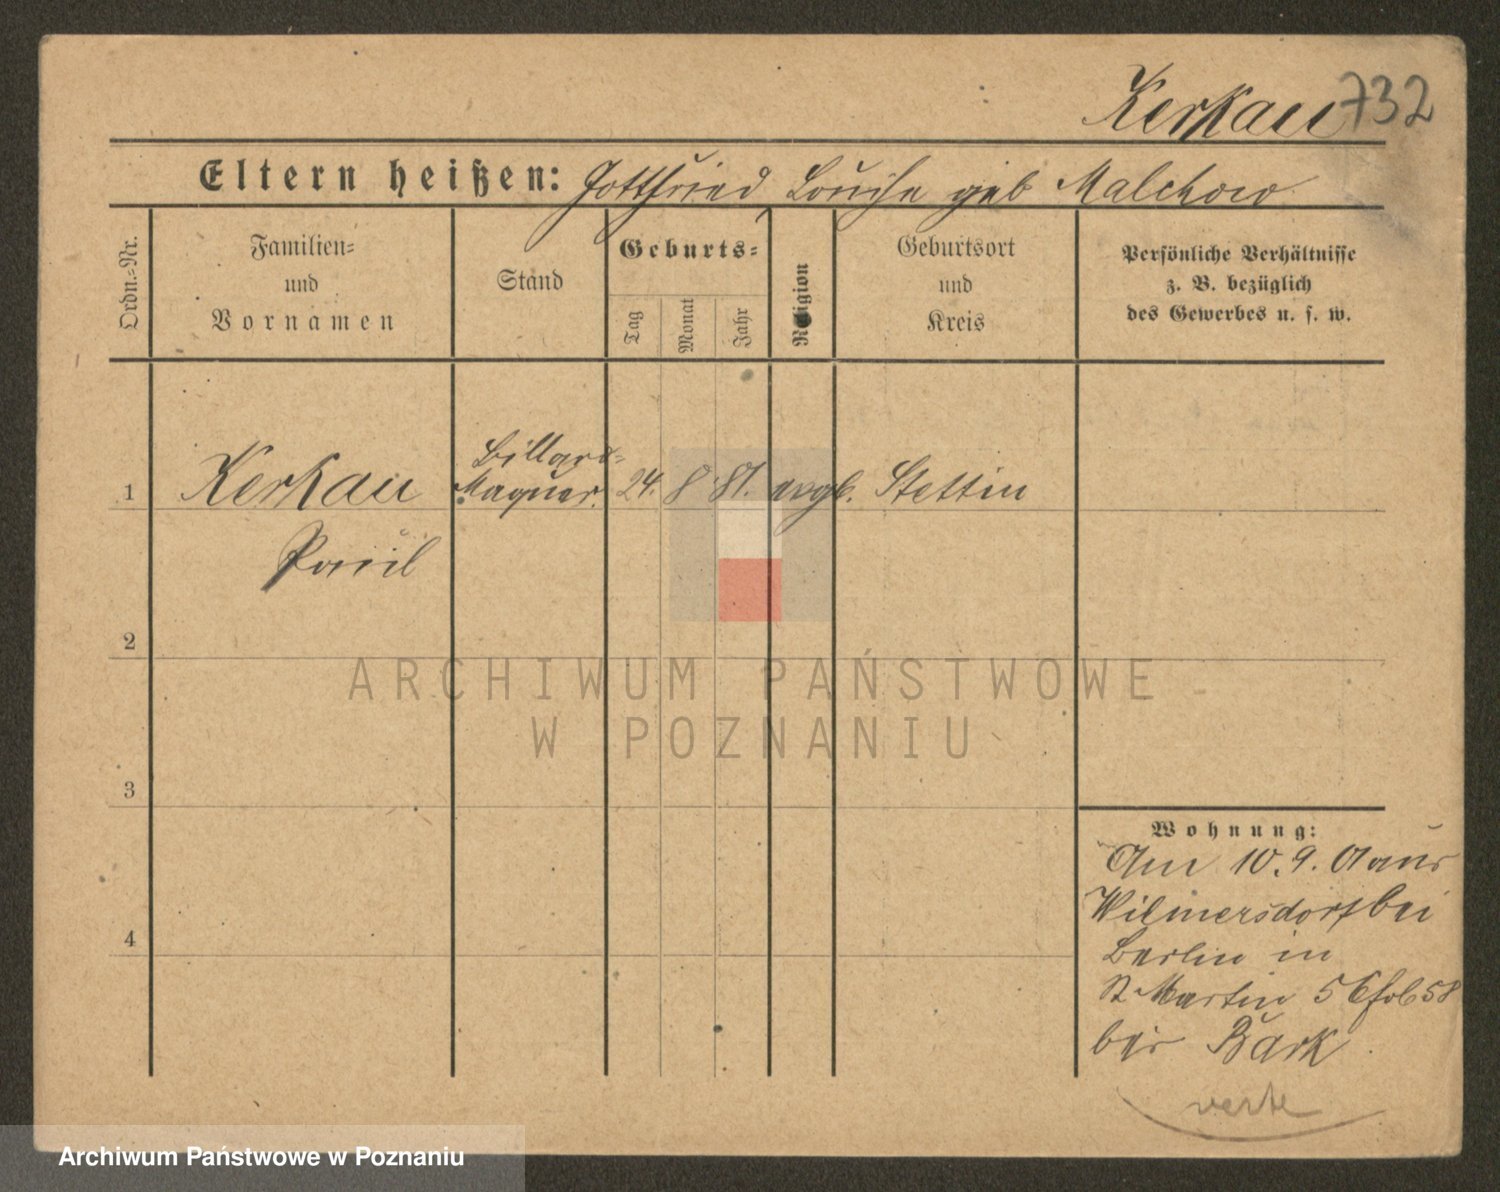 Kerkau 732
Eltern heißen: Gottfried Louise geb Malchow
Ordn.-Nr.
Familien-
und
Vornamen
Stand
Geburts-
Tag
Monat
Jahr
Religion
Geburtsort
und
Kreis
Persönliche Verhältnisse
z. B. bezüglich
des Gewerbes u. s. w.
Billard-
1 Kerkau Maqueur. 24. 8 81. evgl. Stettin
Paul
2
ARCHIWUM PAŃSTWOWE
W POZNANIU
3
Wohnung:
Am 10.9.01 aus
Wilmersdorf bei
4
Berlin in
St Martin 58
bei Bark
verte
Archiwum Państwowe w Poznaniu